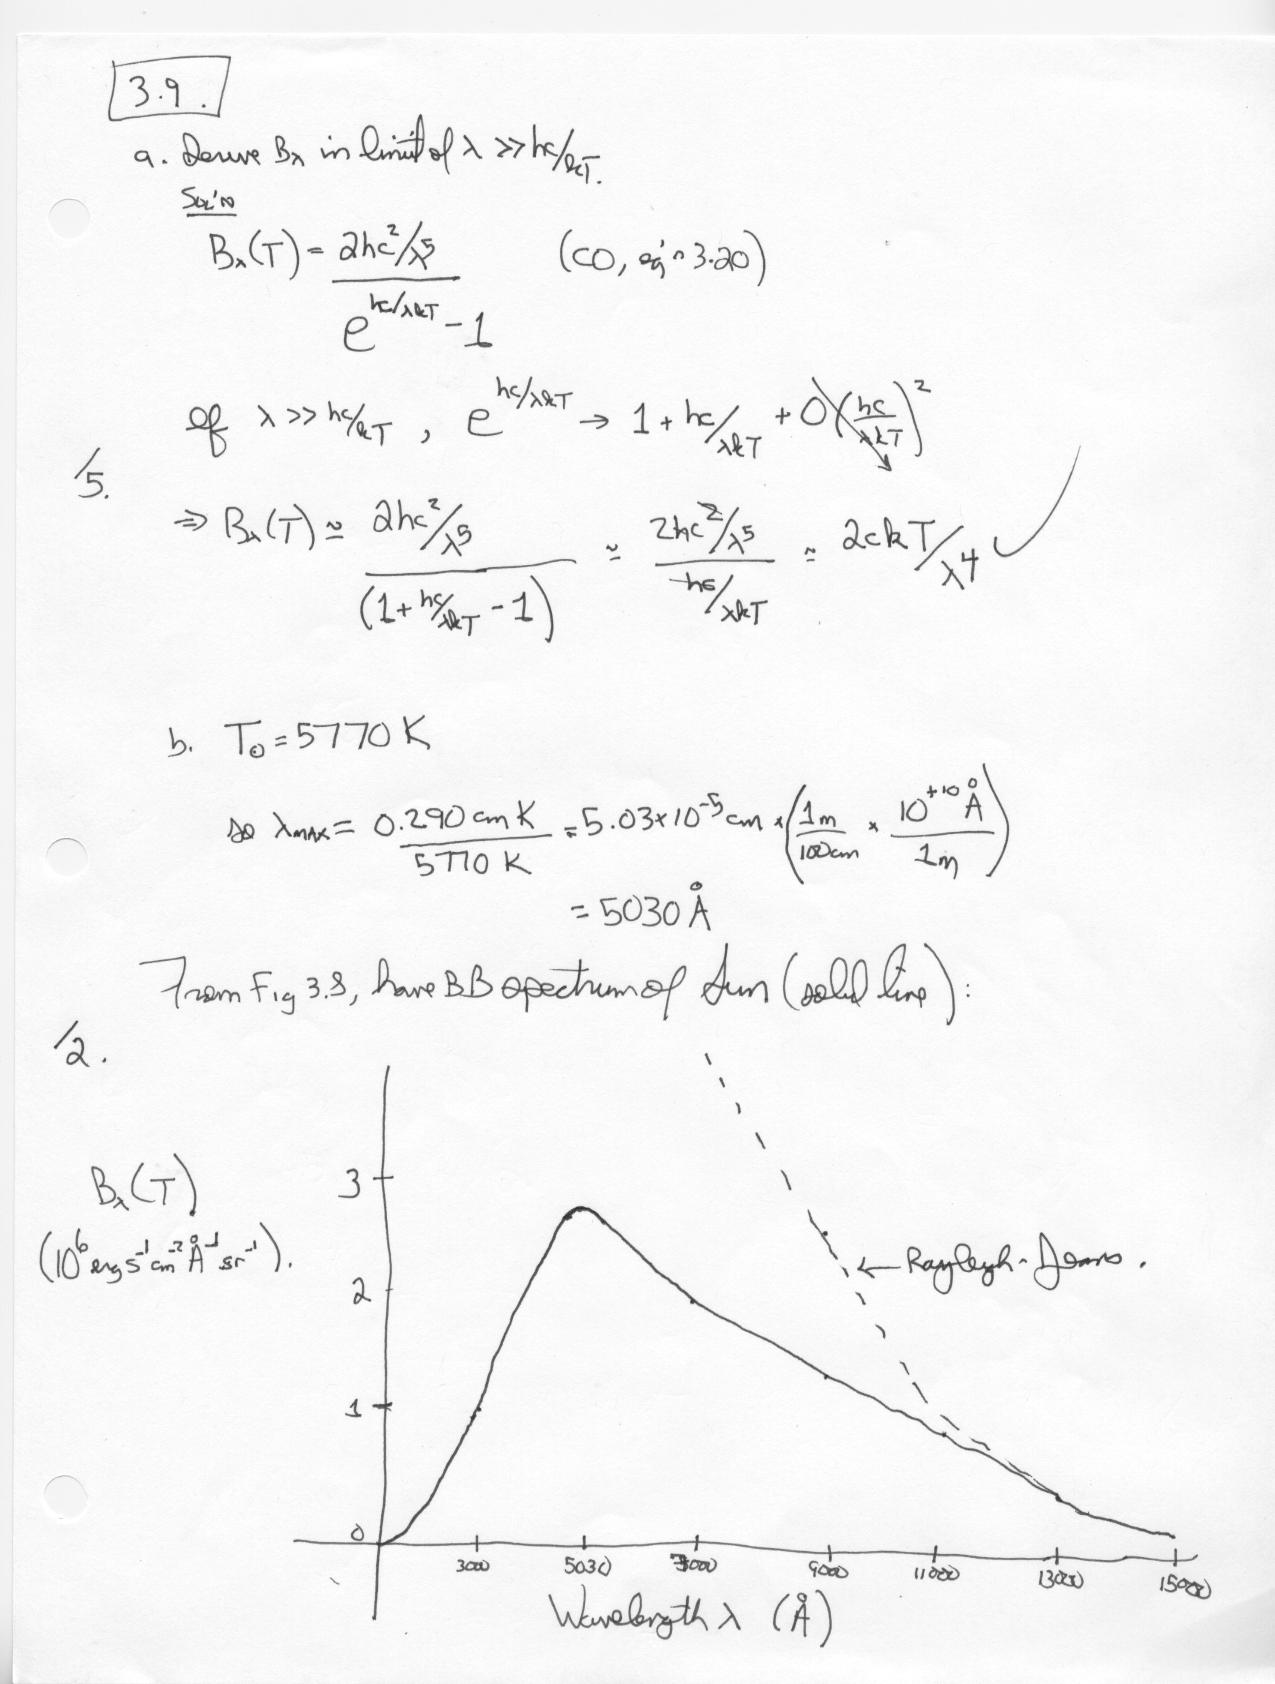 3.9.
a. Derive Bλ in limit of λ >> hc/kT.
Sol'n
Bλ(T) = 2hc²/λ⁵ / (e^(hc/λkT) - 1) (CO, eq'n 3.20)
If λ >> hc/kT, e^(hc/λkT) → 1 + hc/λkT + O(hc/λkT)²
/5.
⇒ Bλ(T) ≃ 2hc²/λ⁵ / (1 + hc/λkT - 1) ≃ 2hc²/λ⁵ / hc/λkT ≃ 2ckT/λ⁴ ✓
b. T⊙ = 5770 K
so λMAX = 0.290 cm K / 5770 K = 5.03×10⁻⁵ cm × (1m/100cm × 10⁺¹⁰ Å/1m)
= 5030 Å
From Fig 3.8, have BB spectrum of Sun (solid line):
/2.
Bλ(T)
(10⁶ erg s⁻¹ cm⁻² Å⁻¹ sr⁻¹).
3
2
1
0
← Rayleigh-Jeans.
3000 5030 7000 9000 11000 13000 15000
Wavelength λ (Å)